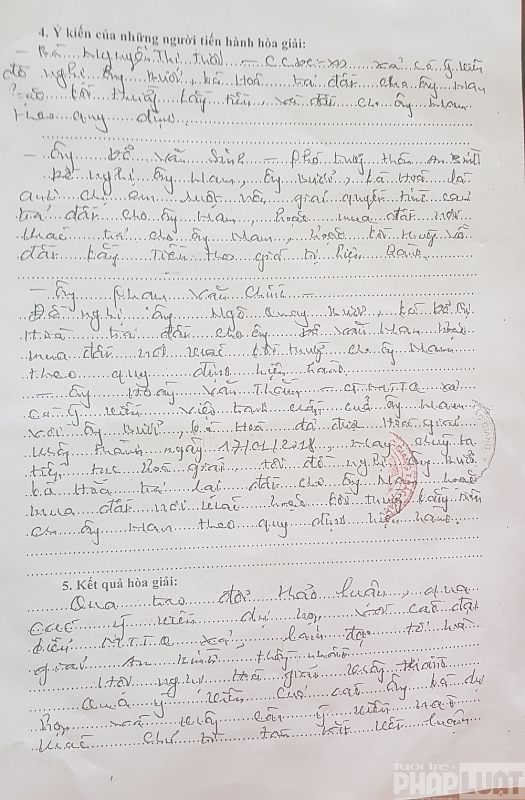 4. Ý kiến của những người tiến hành hòa giải:
- Bà Nguyễn Thị Tươi - CCĐC-XD xã có ý kiến
đề nghị ông Bưởi, bà Hoà trả đất cho ông Man
hoặc bồi thường bằng tiền, đất cho ông Man
theo quy định
- Ông Đỗ Văn Sinh - Phó trưởng thôn An Bình
Đề nghị ông Man, ông Bưởi, bà Hoà là
anh chị em ruột nên giải quyết tình cảm
trả đất cho ông Man, hoặc mua đất nơi
khác trả cho ông Man, hoặc bồi thường
đất bằng tiền theo giá trị hiện hành
- Ông Phan Văn Chính -
Đề nghị ông Ngô Quang Bưởi, bà Đỗ Thị
Hoà trả đất cho ông Đỗ Văn Man hoặc
mua đất nơi khác bồi thường cho ông Man
theo quy định hiện hành
- Ông Hoàng Văn Thắng - CT.MTTQ xã
có ý kiến việc tranh chấp của ông Man
với ông Bưởi, bà Hoà đã được hoà giải
không thành ngày 17/01/2018, nay chúng ta
tiếp tục hoà giải tôi đề nghị ông Bưởi
bà Hoà trả lại đất cho ông Man hoặc
mua đất nơi khác hoặc bồi thường bằng tiền
cho ông Man theo quy định hiện hành
5. Kết quả hòa giải:
Qua trao đổi thảo luận, qua
các ý kiến dự họp, với các đại
diện MTTQ xã, lãnh đạo tổ hoà
giải An Bình thấy rằng
Hội nghị hoà giải không thành
Qua ý kiến của các ông bà dự
họp, không còn ý kiến nào
khác chủ trì tóm tắt kết luận
tuổi trẻ
PHÁP LUẬT